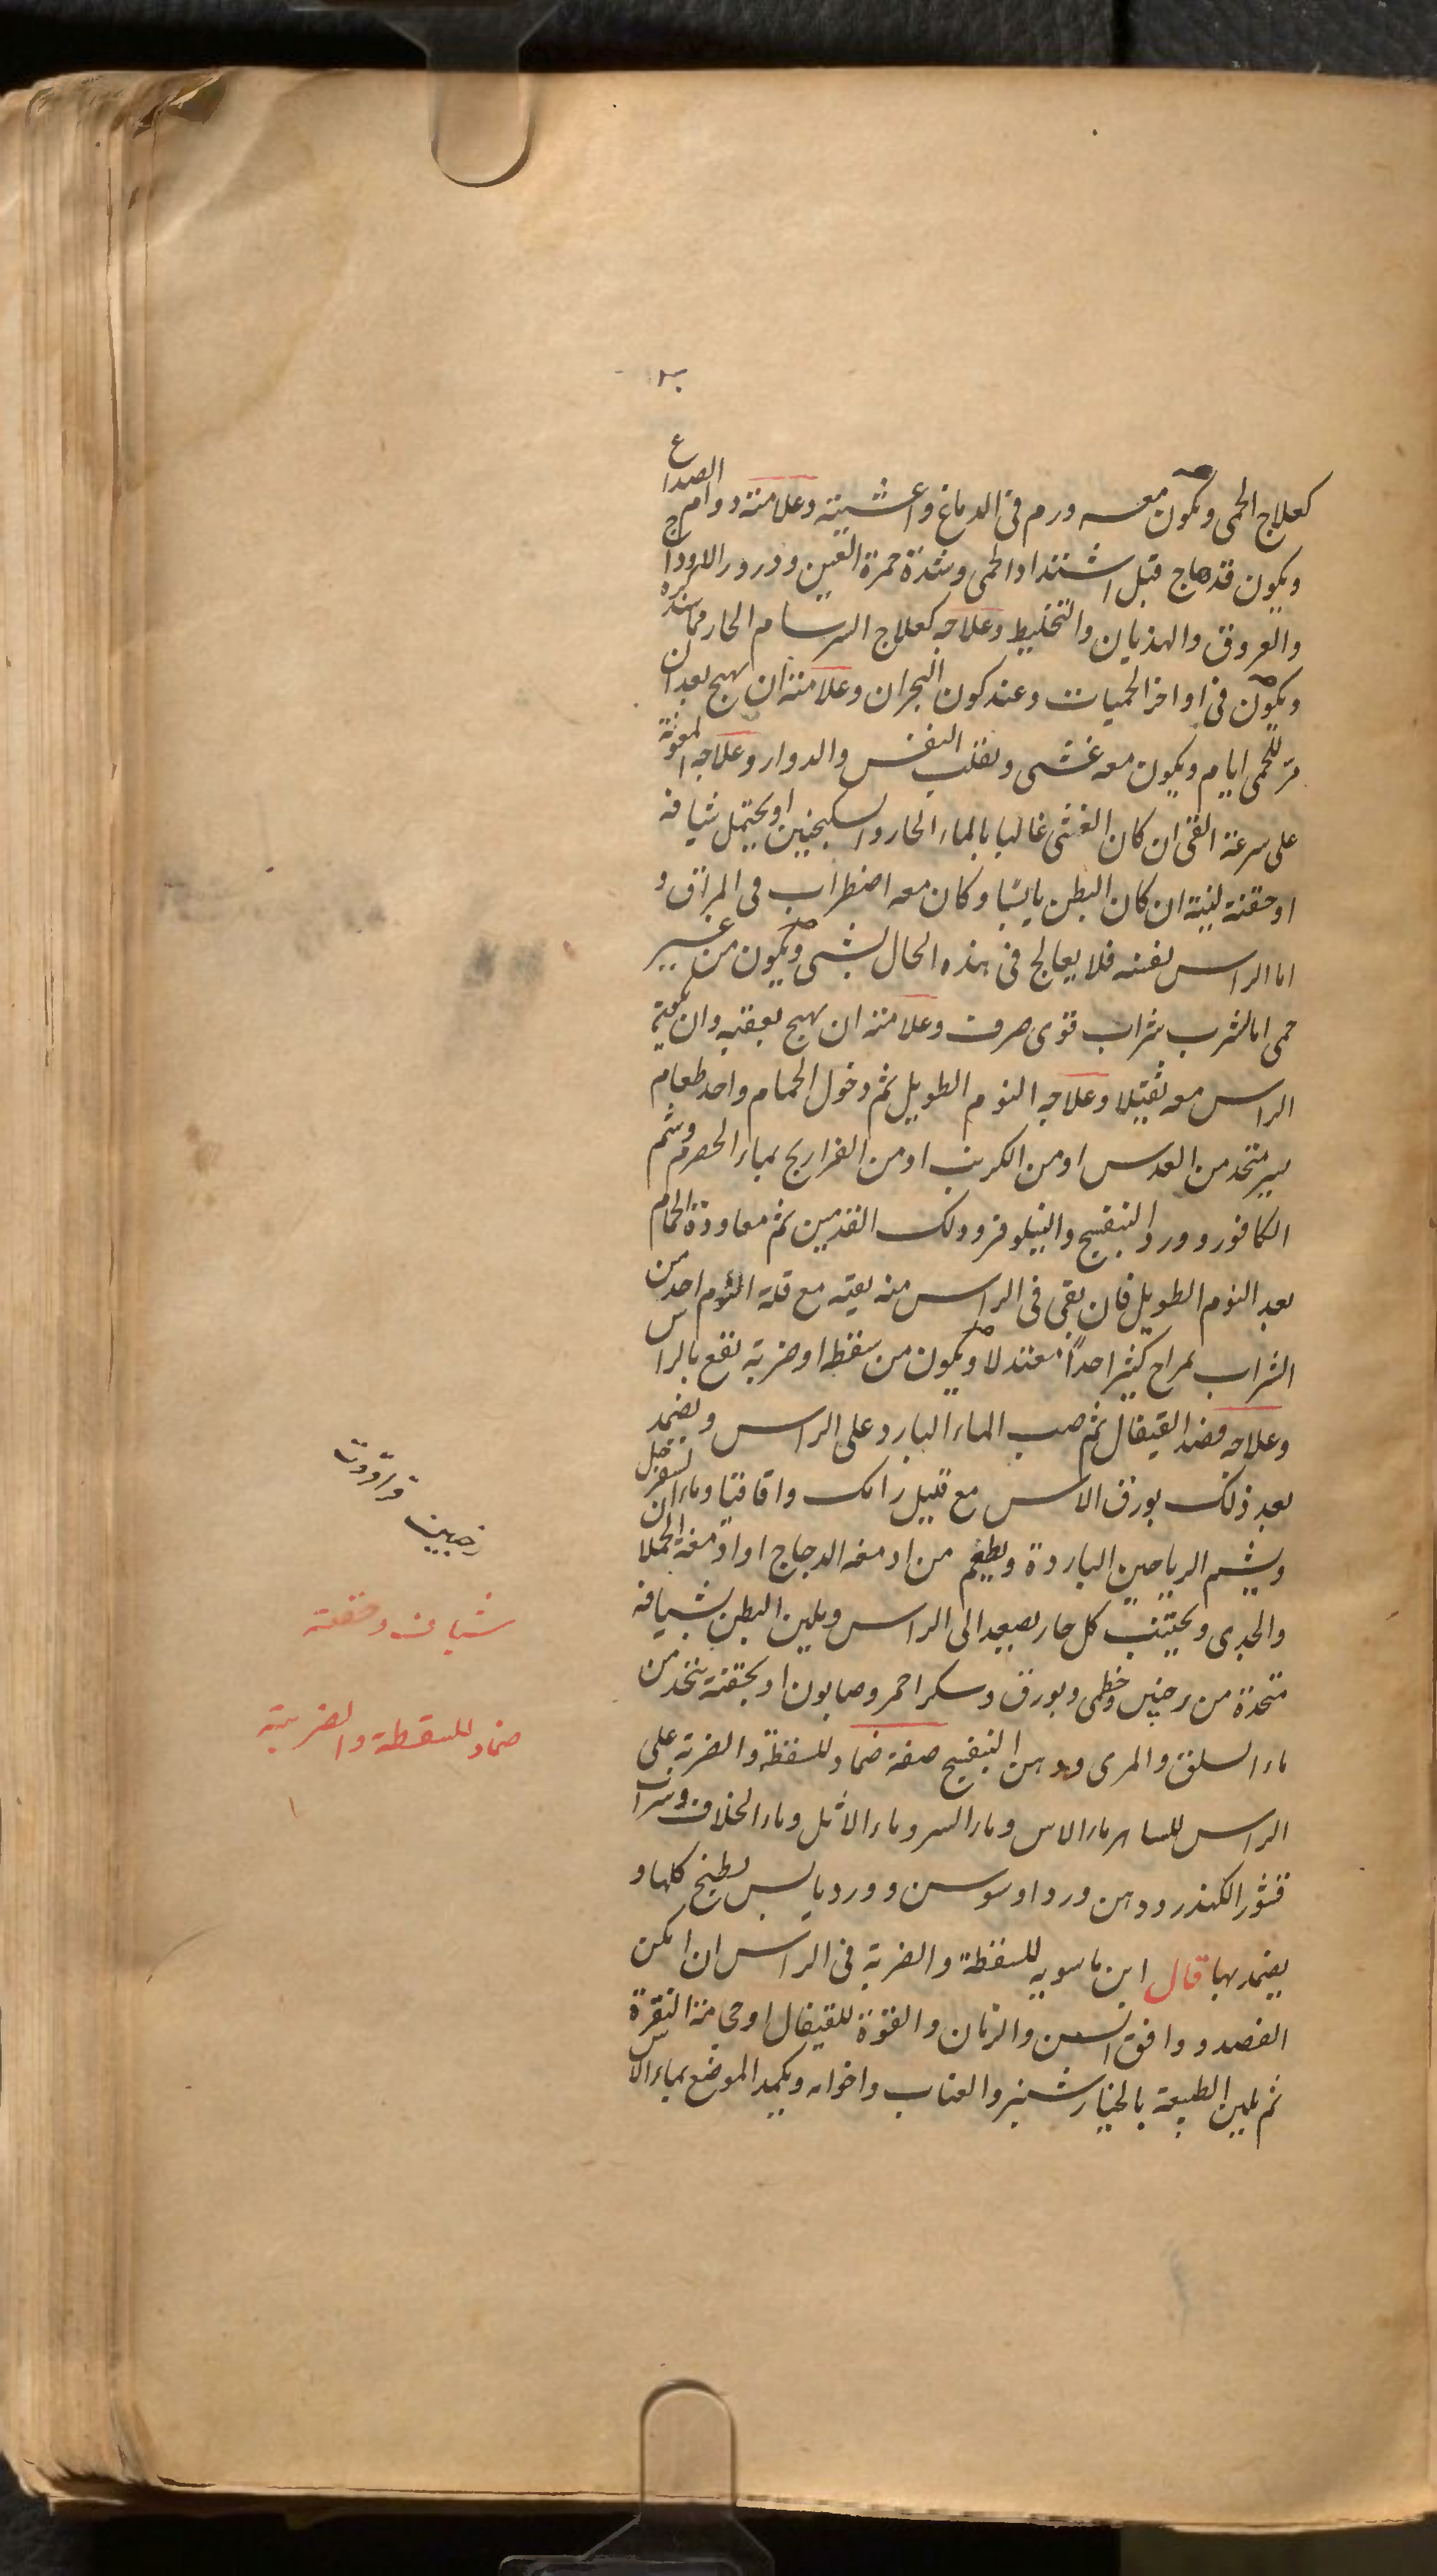 كعلاج الحمى ويكون معه ورم فى الدماغ واغشيته وعلامته دوام الصداع
ويكون قد هاج قبل اشتداد الحمى وشدة حمرة العين ودرور الاوداج
والعروق والهذيان والتخليط وعلاجه كعلاج السرسام الحار
ويكون فى اواخر الحميات وعند كون البحران وعلامته ان يهيج بعد ان
مر للحمى ايام ويكون معه غشى وتقلب النفس والدوار وعلاجه المعونة
على سرعة القى ان كان الغشى غالبا بالماء الحار والسكنجبين او يحتمل شيافة
او حقنة لينة ان كان البطن يابسا وكان معه اضطراب فى المراق و
اما الراس نفسه فلا يعالج فى هذه الحال بشى ويكون من غير
حمى اما لشرب شراب قوى صرف وعلامته ان يهيج بعقبه وان يكون
الراس معه ثقيلا وعلاجه النوم الطويل ثم دخول الحمام واحد طعام
يسير متخذ من العدس او من الكرنب او من الفراريج بماء الحصرم وشم
الكافور وورد البنفسج والنيلوفر ودلك القدمين ثم معاودة الحمام
بعد النوم الطويل فان بقى فى الراس منه بقية مع قلة النوم احد من
الشراب بمزاج كثير احدا معتدلا ويكون من سقطة او ضربة تقع بالراس
وعلاجه فصد القيفال ثم صب الماء البارد على الراس ويضمد
بعد ذلك بورق الاس مع قليل رامك واقاقيا وماء السفرجل
ويشم الرياحين الباردة ويطعم من ادمغة الدجاج او ادمغة الحملان
والجدى ويجتنب كل حار يصعد الى الراس ويلين البطن بشيافة
متخذة من ترنجبين وخطمى وبورق وسكر احمر وصابون او بحقنة يتخذ من
ماء السلق والمرى ودهن البنفسج صفة ضماد للسقطة والضربة على
الراس للساهر ماء الاس وماء السرو وماء الاثل وماء الخلاف وشراب
قشور الكندر ودهن ورد او سوسن وورد يابس يطبخ كلها و
يضمد بها قال ابن ماسويه للسقطة والضربة فى الراس ان امكن
الفصد ووافق السن والزمان والقوة للقيفال او حجامة النقرة
ثم يلين الطبيعة بالخيارشنبر والعناب واخواته ويكمد الموضع بماء الاس
شياف وحقنة
ضماد للسقطة والضربة